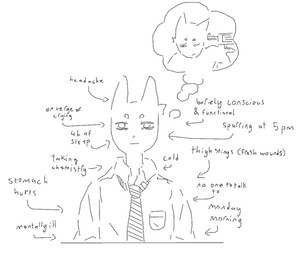 headache
on verge of
crying
barely conscious
& functional
4h of
sleep
sparring at 5 pm
taking
chemistry
cold
thigh stings (fresh wounds)
stomach
hurts
no one to talk
to
monday
morning
mentally ill